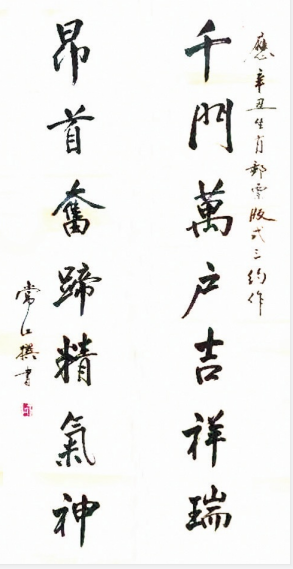 應辛丑生肖郵票版式三約作
千門萬户吉祥瑞
昂首奮蹄精氣神
常江撰書